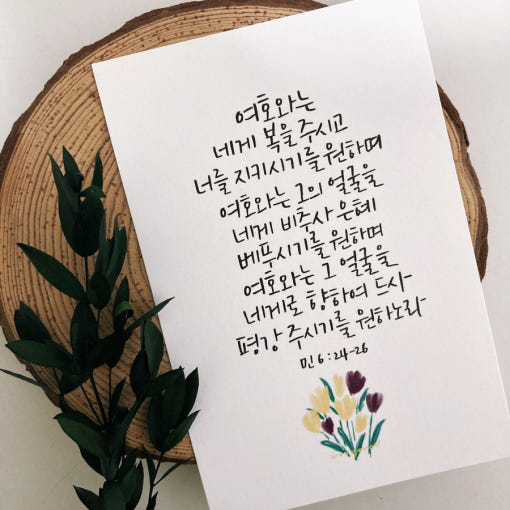 여호와는
네게 복을 주시고
너를 지키시기를 원하며
여호와는 그의 얼굴을
네게 비추사 은혜
베푸시기를 원하며
여호와는 그 얼굴을
네게로 향하여 드사
평강 주시기를 원하노라
민 6 : 24-26